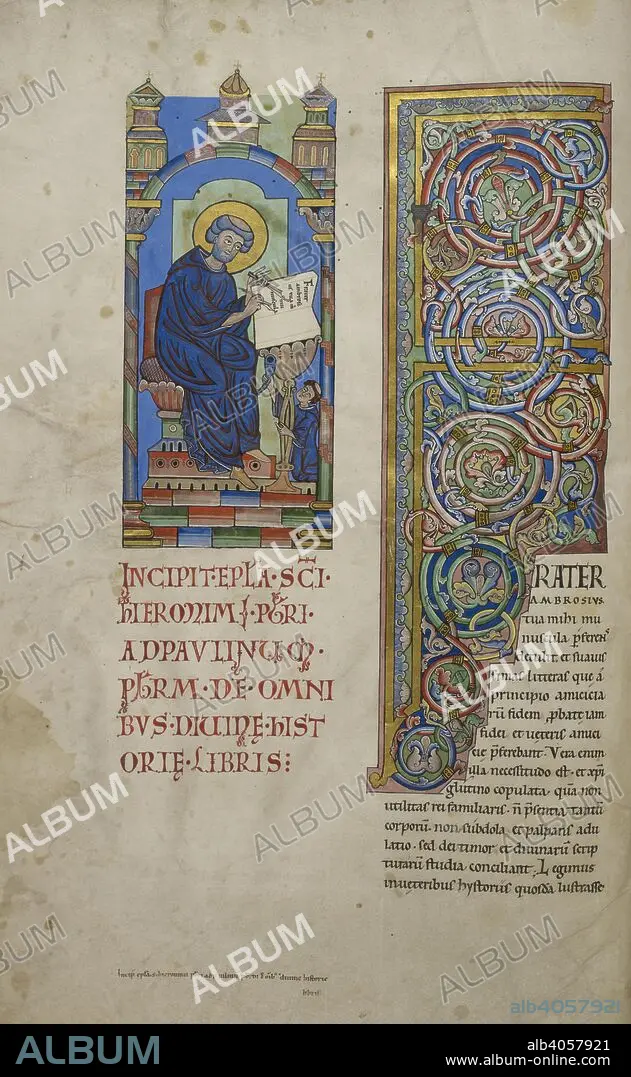 Frater
ambrosi
INCIPIT·EPLA·SCI·
HIERONIMI·PBRI·
AD PAVLINUM·
PBRM·DE·OMNI
BVS·DIVINĘ·HIST
ORIĘ·LIBRIS:
FRATER
AMBROSIVS
tua mihi mu
nuscula pferens
detulit et suaviss
simas litteras que a
principio amicicia
rū fidem pbate iam
fidei et veteris amici
cię pferebant. Vera enim
illa necessitudo est et xpi
glutino copulata. quā non
utilitas rei familiaris. n̄ psentia tantū
corporū. non subdola et palpans adu
latio. sed dei timor et divinarū scrip
turarū studia conciliant. Legimus
in veteribus hystoriis quosdā lustrasse
ALBUM
alb4057921
ALBUM
alb4057921
www.album-online.com